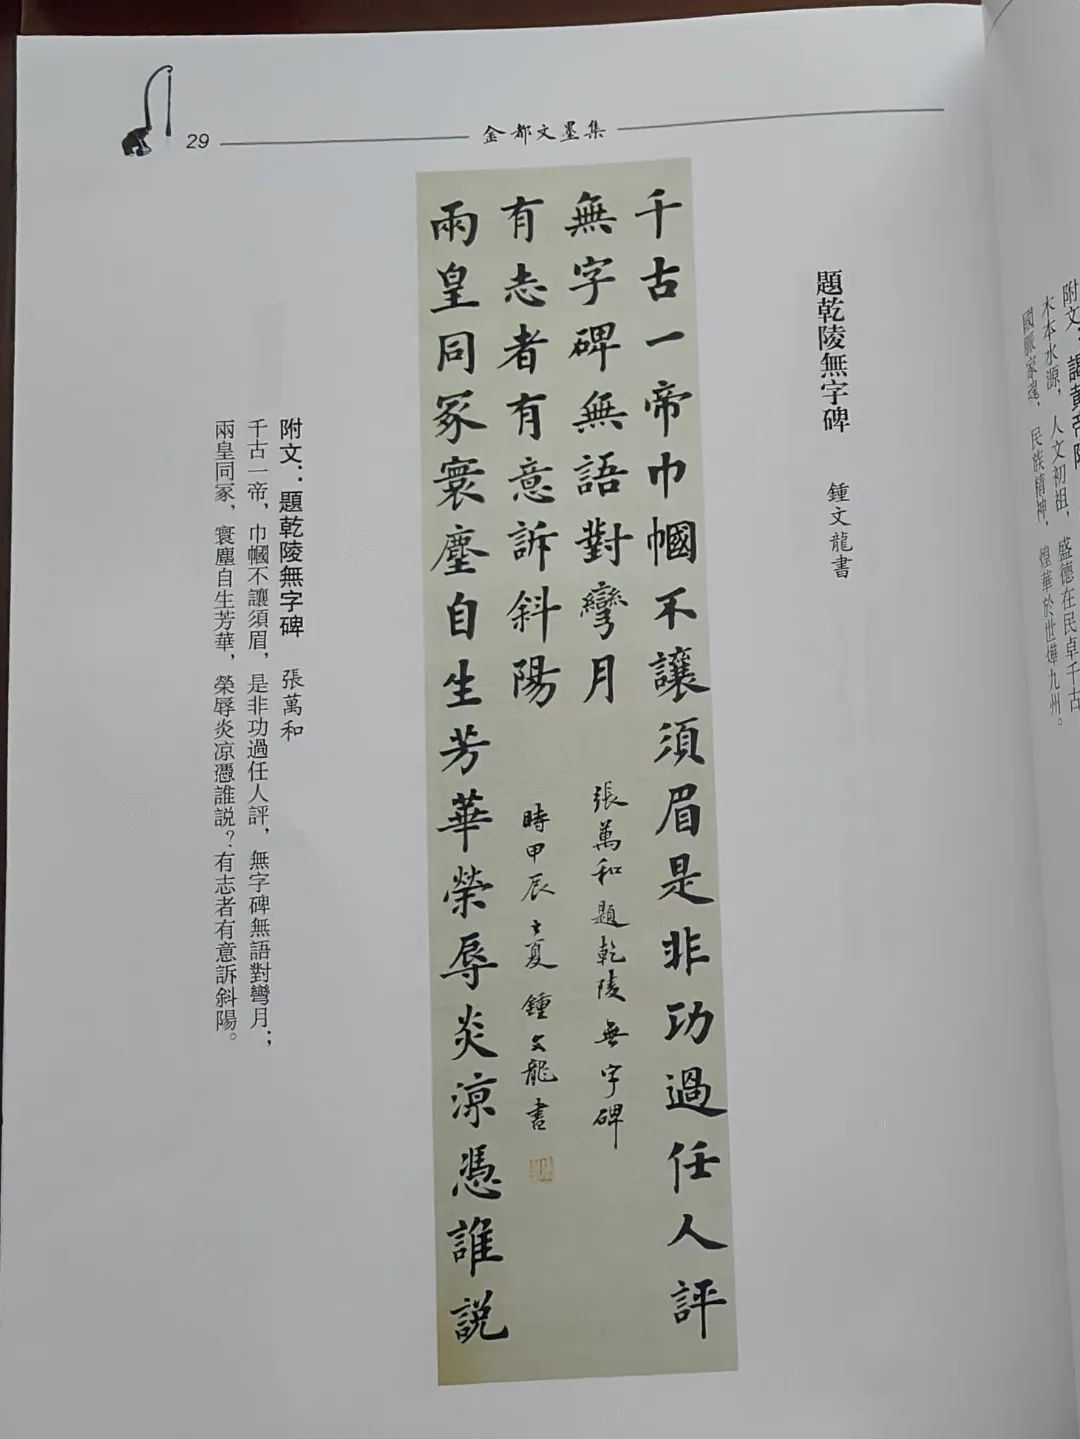 29
金都文墨集
題乾陵無字碑 鍾文龍書
千古一帝巾幗不讓須眉是非功過任人評
無字碑無語對彎月
張萬和題乾陵無字碑
兩皇同冢寰塵自生芳華榮辱炎涼憑誰説
有志者有意訴斜陽
時甲辰之夏鍾文龍書
附文：題乾陵無字碑 張萬和
千古一帝，巾幗不讓須眉，是非功過任人評，無字碑無語對彎月；
兩皇同冢，寰塵自生芳華，榮辱炎凉憑誰説？有志者有意訴斜陽。
附文：謁黄帝陵
木本水源，人文初祖，盛德在民卓千古
國脈家魂，民族精神，煌華於世燁九州。